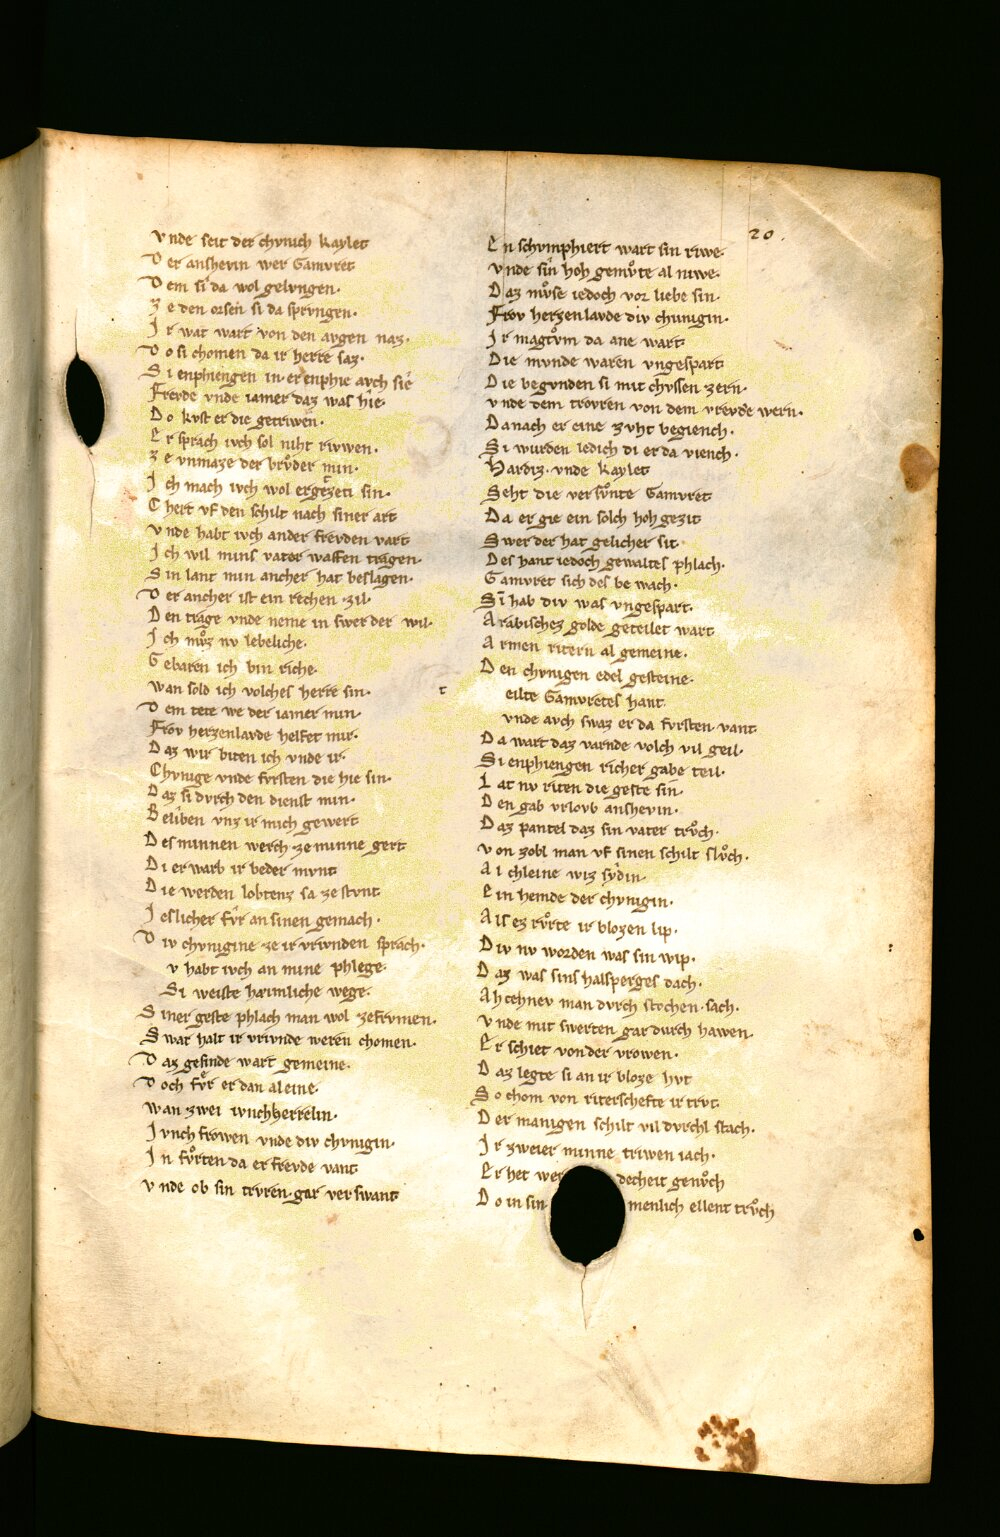 20.
vnde seit der chvnich kaylet
Der anshevin wer Gamvret
Dem si da wol gelvngen.
Ze den orsen si da sprvngen.
Ir wat wart von den avgen naz.
Do si chomen da ir herre saz.
Si enphiengen in. er enphie avch sie
Frevde vnde iamer daz was hie.
Do kvst er die getriwen.
Er sprach ivch sol niht rivwen.
Ze vnmaze der brvͦder min.
Ich mach ivch wol ergezeti sin.
Chert vf den schilt nach siner art
vnde habt ivch ander frevden vart
Ich wil mins vater waffen tragen.
Sin lant min ancher hat beslagen.
Der ancher ist ein rechen zil.
Den trage vnde neme in swer der wil.
Ich mvͦz nv lebeliche.
Gebaren ich bin riche.
wan sold ich volches herre sin.
Dem tete we der iamer min
Frov herzenlavde helfet mir.
Daz wir biten ich vnde ir.
Chvnige vnde fvrsten die hie sin.
Daz si dvrch den dienst min.
Beliben vnz ir mich gewert
Des minnen werch ze minne gert
Di erwarb ir beder mvnt
Die werden lobtenz sa ze stvnt
Ieslicher fvͦr an sinen gemach.
Div chvnigine ze ir vrivnden sprach.
v habt ivch an mine phlege.
Si weiste haimliche wege.
Siner geste phlach man wol zefrvmen.
Swar halt ir vrivnde weren chomen.
Daz gesinde wart gemeine.
Doch fvͦr er dan aleine.
wan zwei ivnchherrelin.
Ivnchfrowen vnde div chvnigin.
In fvͦrten da er frevde vant
vnde ob sin trvren. gar verswant
En schvmphiert wart sin riwe.
vnde sin hoh gemvͦte al niwe.
Daz mvͦse iedoch vor liebe sin.
Frov herzenlavde div chunigin.
Ir magtvͦm da ane wart
Die mvnde waren vngespart
Die begvnden si mit chvssen zern.
vnde dem trovren von dem vrevde wern.
Danach er eine zvht begiench.
Si wurden ledich di er da viench.
Hardiz. vnde kaylet
Seht die versvͦnte Gamvret
Da ergie ein solch hohgezit
Swer der hat gelicher sit.
Des hant iedoch gewaltes phlach.
Gamvret sich des bewach.
Si hab div was vngespart.
Arabisches golde geteilet wart
Armen ritern al gemeine.
Den chvnigen edel gesteine.
t
eilte Gamvretes hant
vnde avch swaz er da fvrsten vant
Da wart daz varnde volch vil geil.
Si enphiengen richer gabe teil.
Lat nv riten die geste sin.
Den gab vrlovb anshevin.
Daz pantel daz sin vater trvͦch.
von zobl man vf sinen schilt slvͦch.
Al chleine wiz sydin.
Ein hemde der chvnigin.
Als ez rvͦrte ir blozen lip.
Div nv worden was sin wip.
Daz was sins halsperges dach.
Ahtehnev man dvrch stochen sach.
vnde mit swerten gar durch hawen.
Er schiet von der vrowen.
Daz legte si an ir bloze hvt
So chom von riterschefte ir trvt.
Der manigen schilt vil dvrchl stach.
Ir zweier minne triwen iach.
Er het wer decheit genvͦch
Do in sin menlich ellent trvͦch